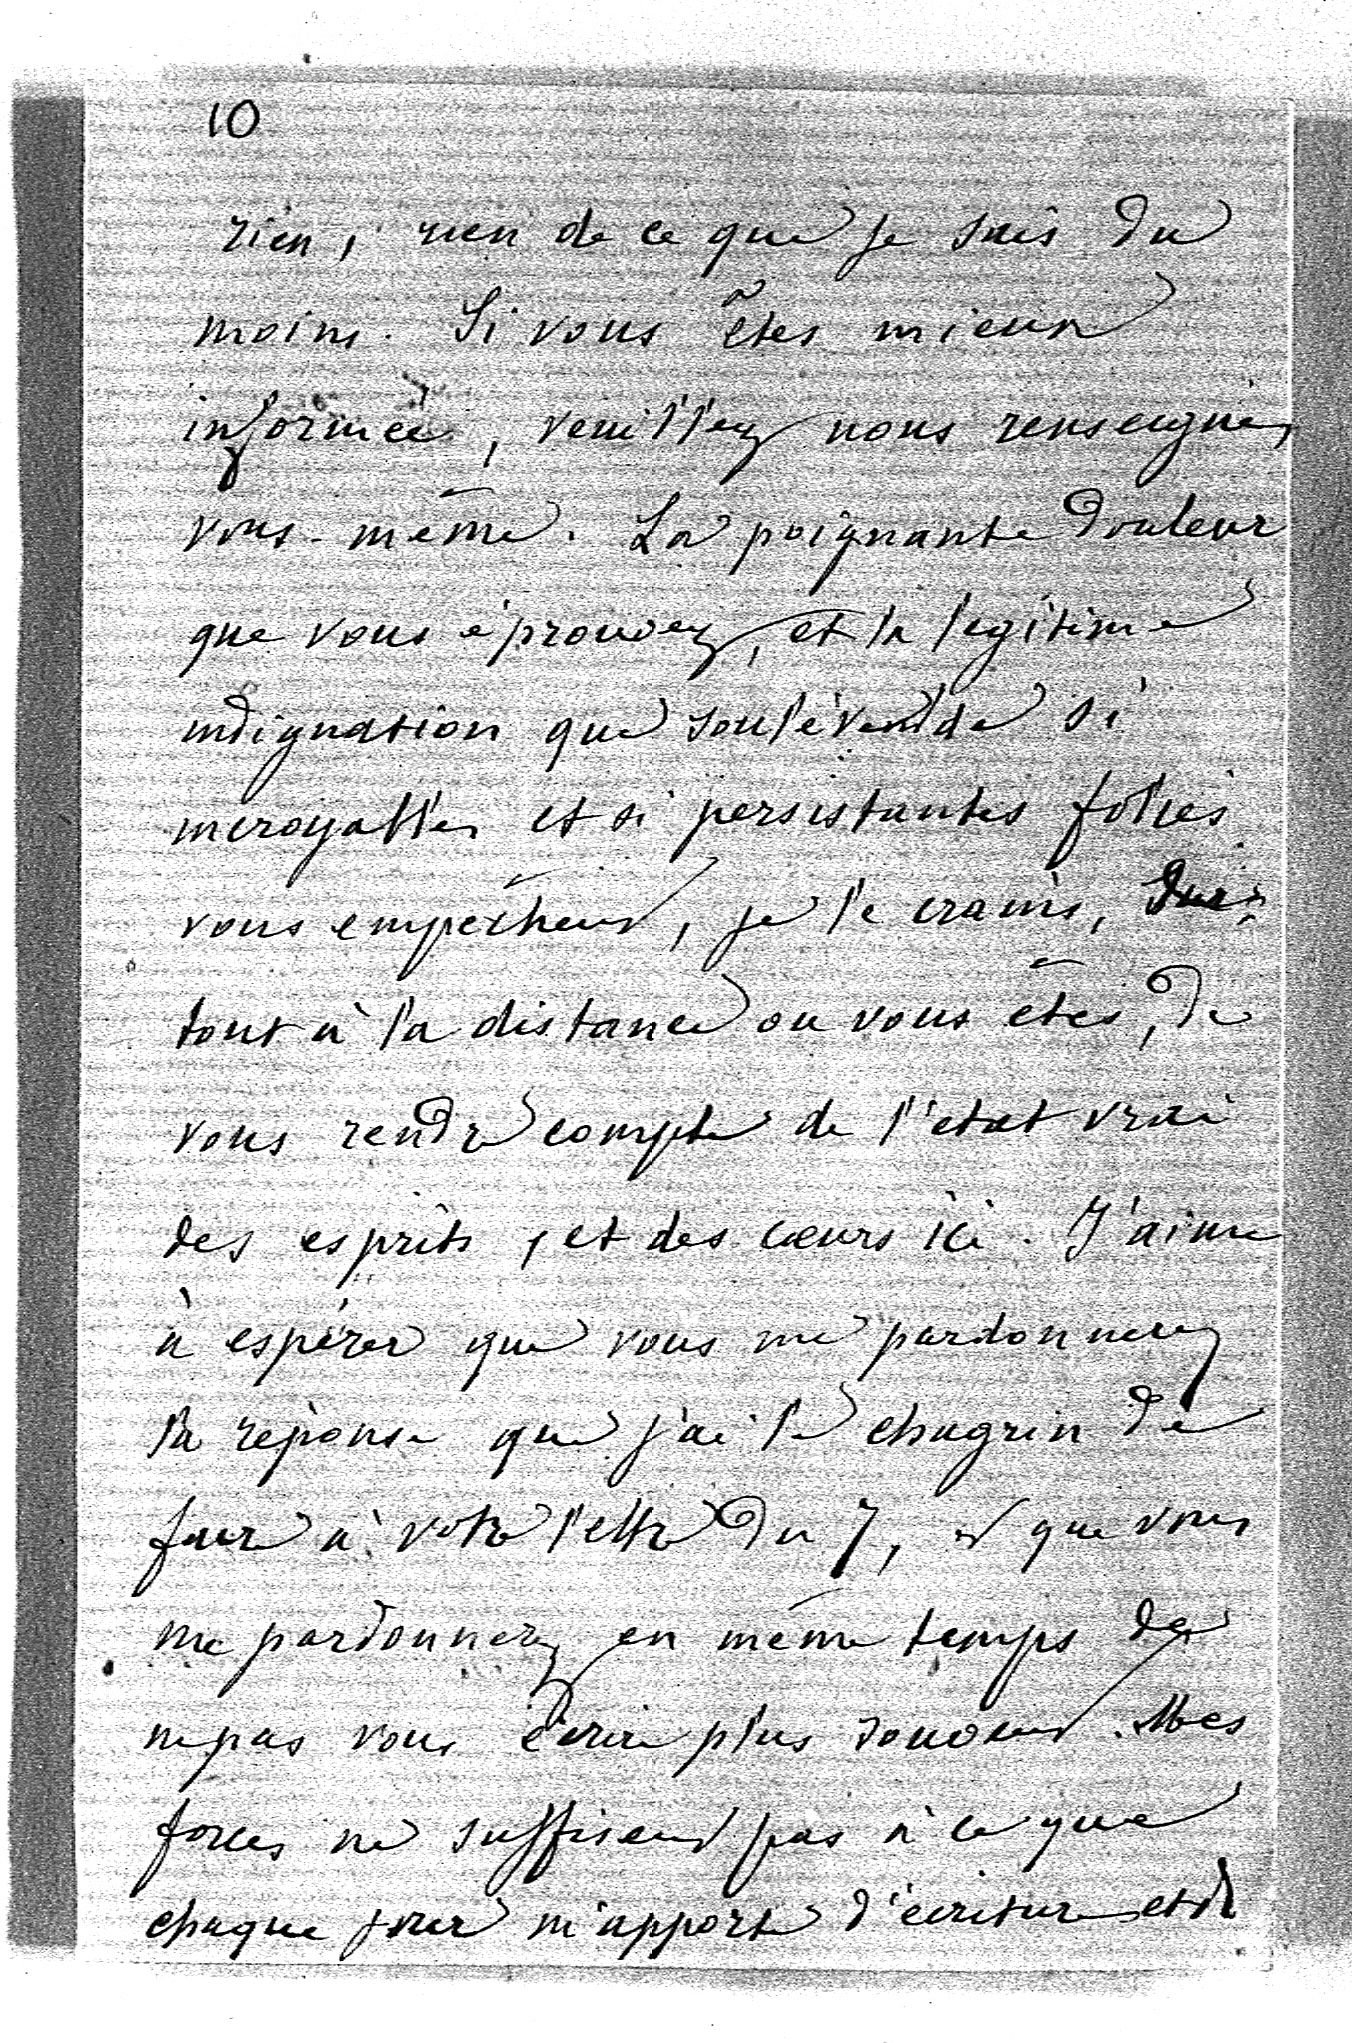 10
rien, rien de ce que je sais du
moins. Si vous êtes mieux
informée, veuillez nous renseigner
vous-même. La poignante douleur
que vous éprouvez, et la légitime
indignation que soulèvent de si
incroyables et si persistantes folies
vous empêchent, je le crains, sur-
tout à la distance ou vous êtes, de
vous rendre compte de l'état vrai
des esprits, et des cœurs ici. J'aime
à espérer que vous me pardonnerez
la réponse que j'ai le chagrin de
faire à votre lettre du 7, et que vous
me pardonnerez en même temps de
ne pas vous écrire plus souvent. Mes
forces ne suffisent pas à ce que
chaque jour m'apporte d'écriture et de